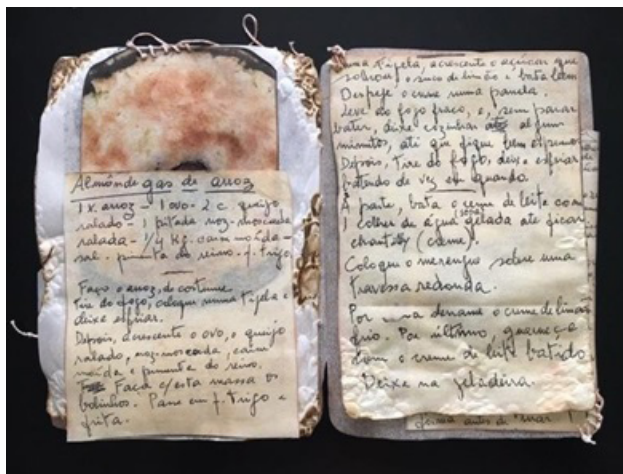 Almôndegas de arroz
1 x. arroz - 1 ovo - 2 c. queijo
ralado - 1 pitada noz-moscada
ralada - 1/4 kg. carne moída -
sal. pimenta do reino - f. trigo.
Faço o arroz, do costume.
Tire do fogo, coloque numa tijela e
deixe esfriar.
Depois, acrescente o ovo, o queijo
ralado, noz-moscada, carne
moída e pimenta do reino.
Faça c/esta massa os
bolinhos. Passe em f. trigo e
frita.
uma tijela, acrescente o açúcar que
sobrou, o suco de limão e bata bem
Despeje o creme numa panela.
Leve ao fogo fraco, e, sem parar
bater, deixe cozinhar alguns
minutos, até que fique bem espesso
Depois, tire do fogo, deixe esfriar
batendo de vez em quando.
À parte, bata o creme de leite com
1 colher de água gelada até ficar
chantilly (creme).
Coloque o merengue sobre uma
travessa redonda.
Por derrame o creme de limão
frio. Por último, guarneça
com o creme de leite batido
Deixe na geladeira.
antes de